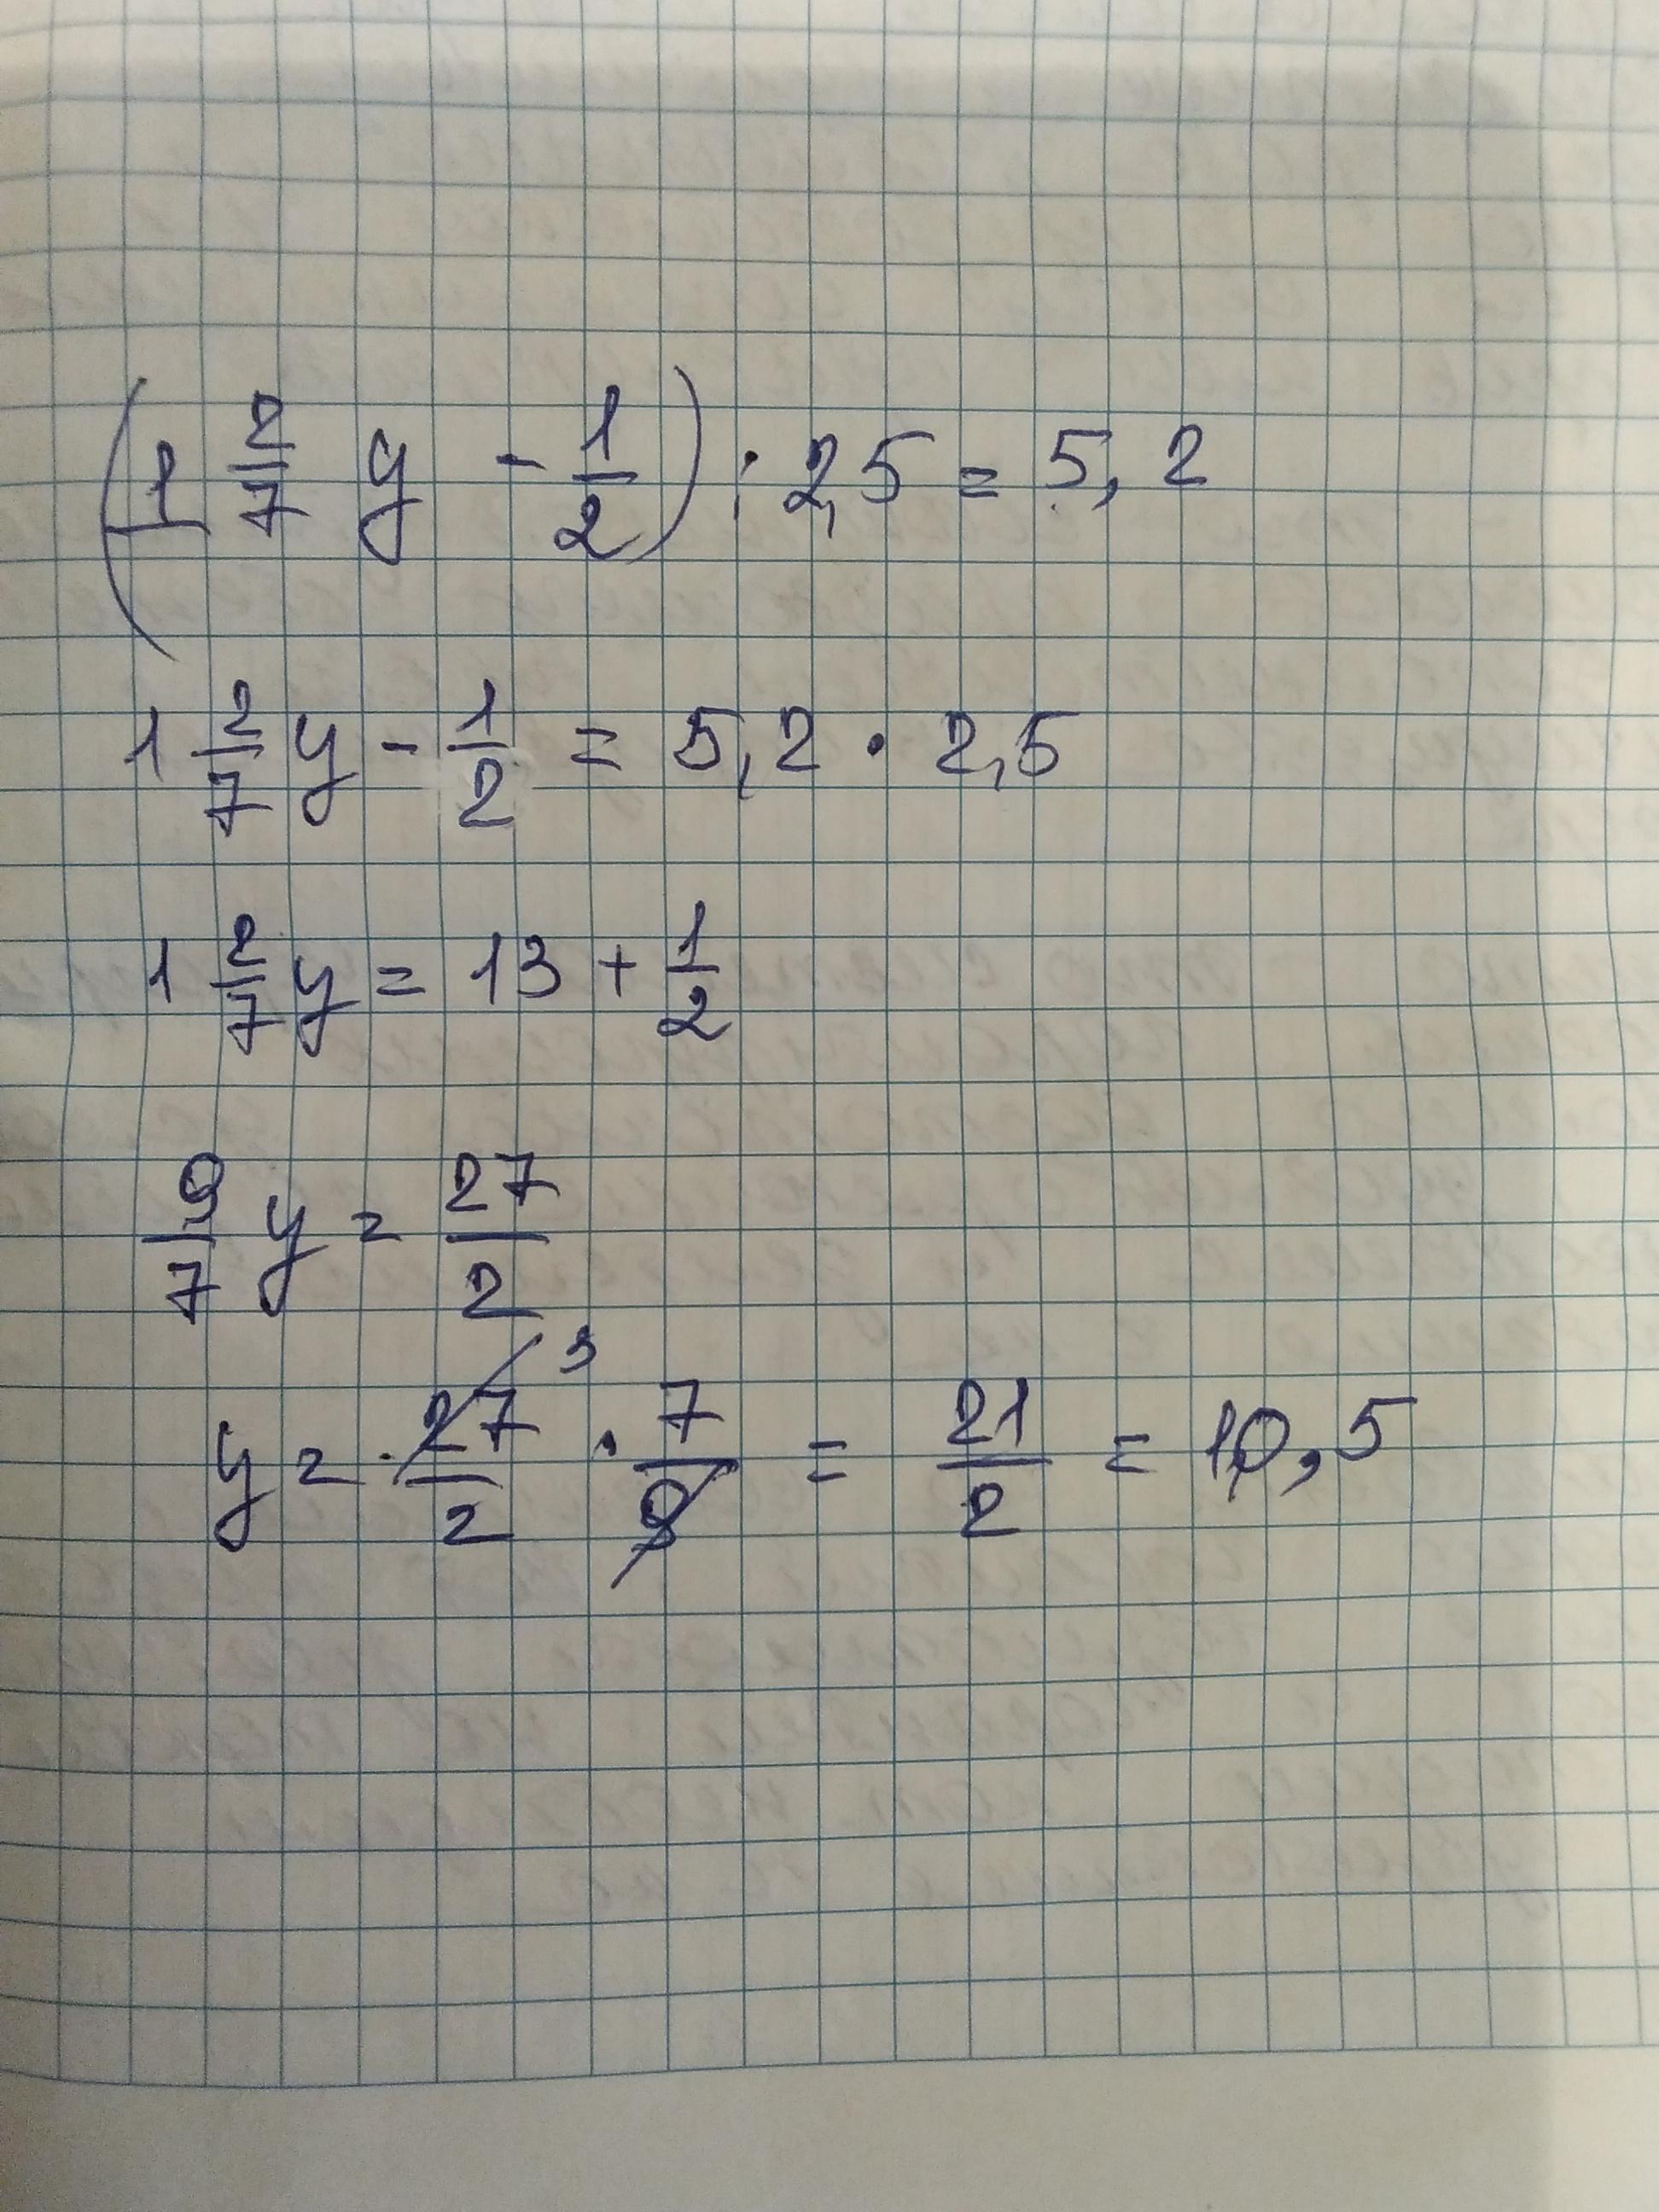 (1 2/7 y - 1/2) : 2,5 = 5,2
1 2/7 y - 1/2 = 5,2 · 2,5
1 2/7 y = 13 + 1/2
9/7 y = 27/2
y = 27/2 3 · 7/9 = 21/2 = 10,5